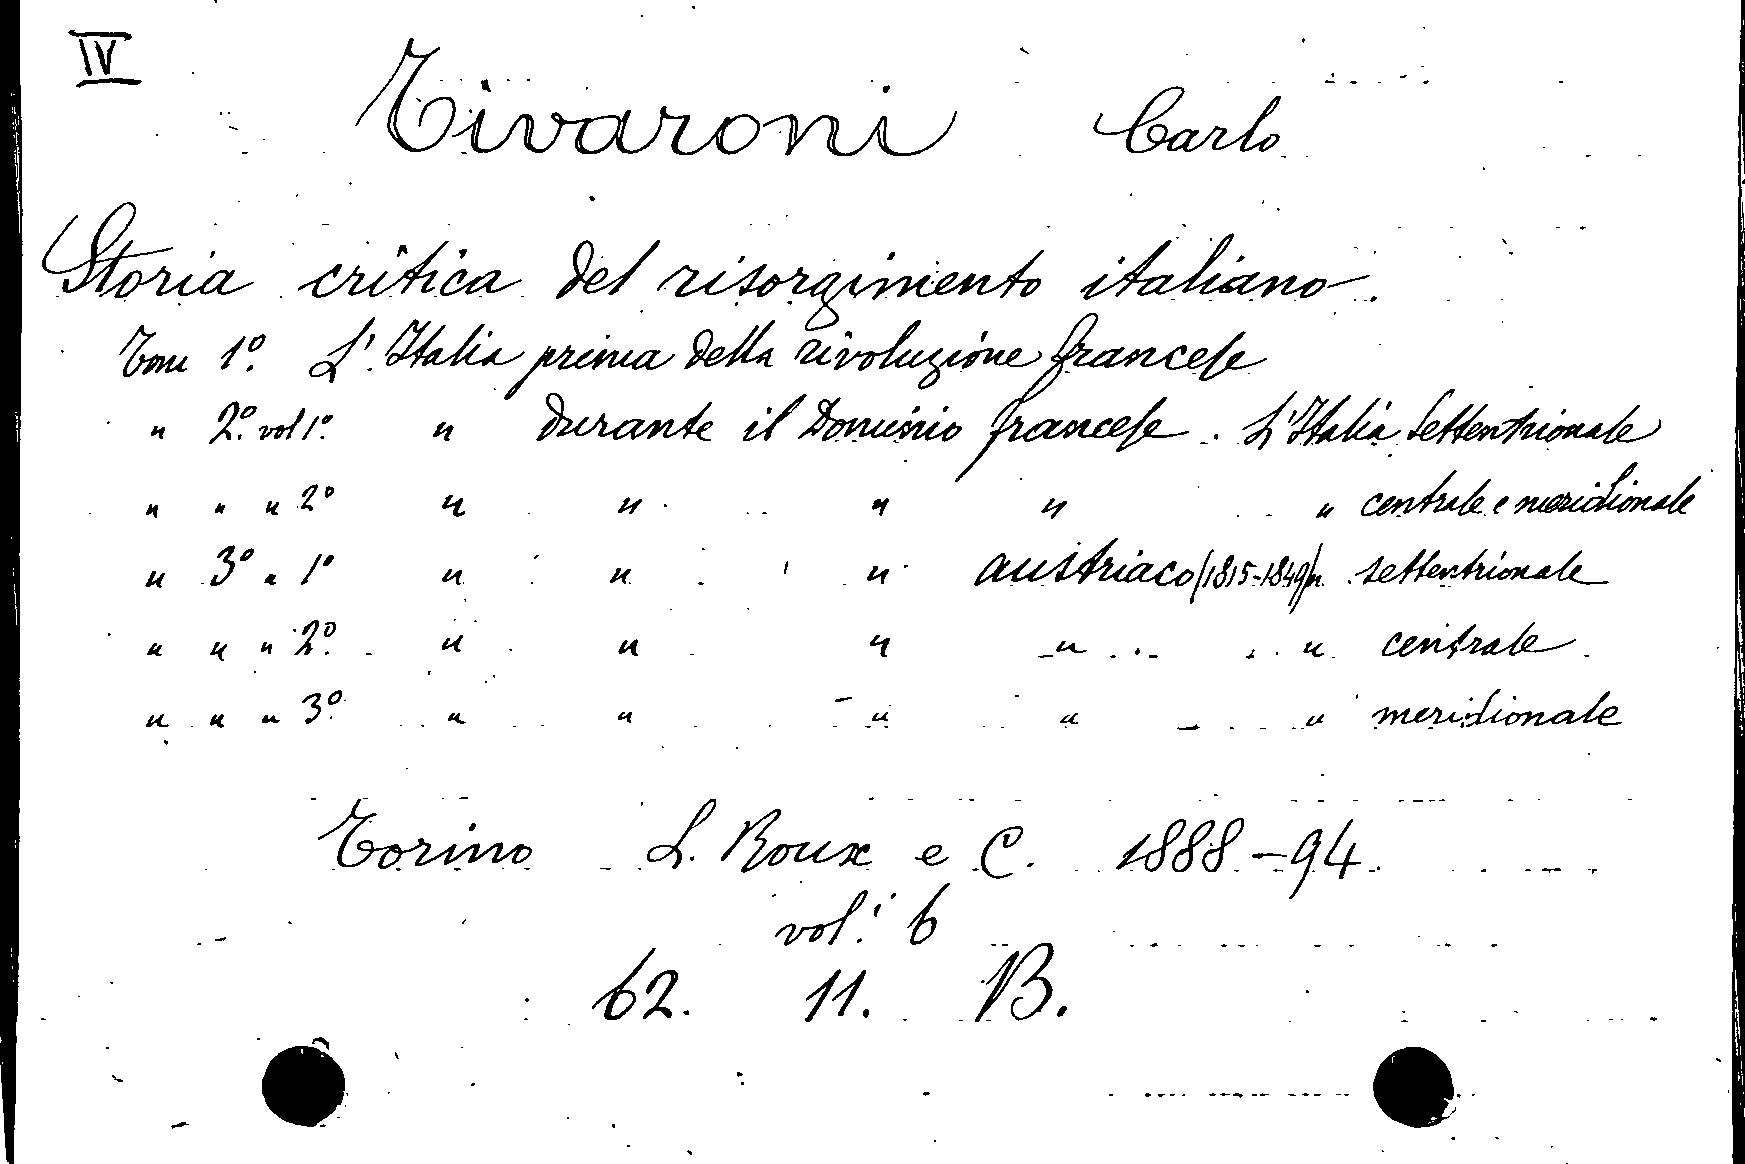 IV
Tivaroni Carlo
Storia critica del risorgimento italiano.
Tom 1º. L'Italia prima della rivoluzione francese
" 2º. vol 1º. " durante il Dominio francese. L'Italia settentrionale
" " " 2º " " " " " centrale e meridionale
" 3º " 1º " " " austriaco (1815-1849) " settentrionale
" " " 2º. " " " " " centrale
" " " 3º. " " " " " meridionale
Torino L. Roux e C. 1888-94.
vol.i 6
62. 11. B.